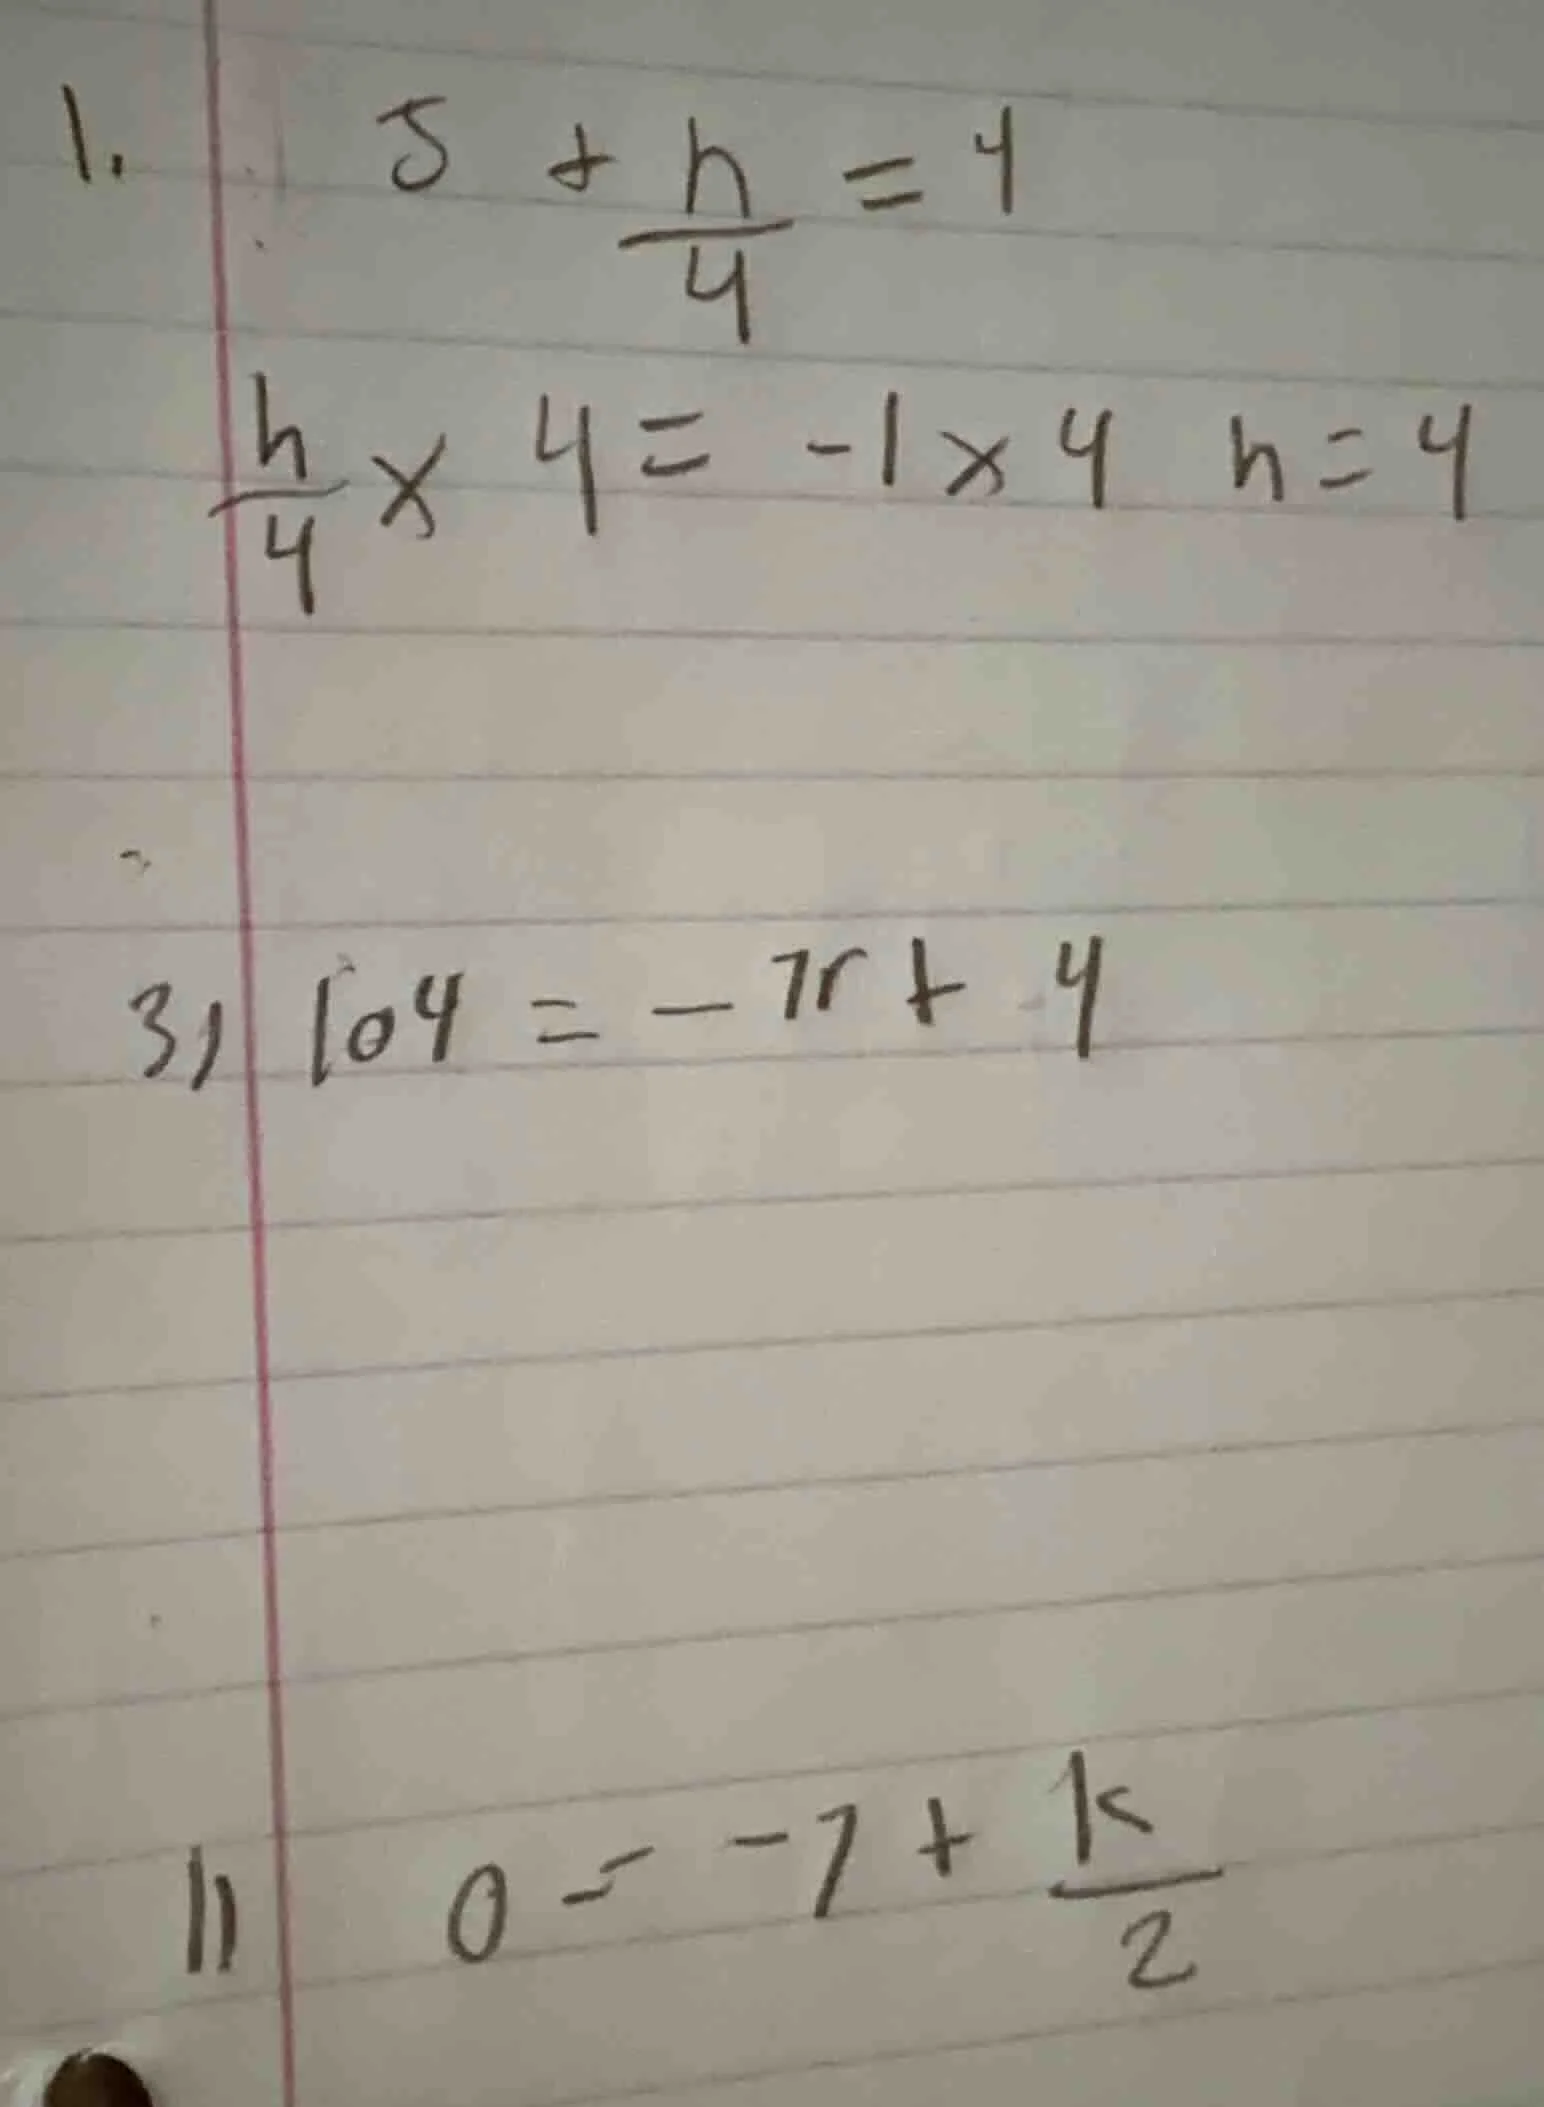 1. 5 + h/4 = 4
h/4 x 4 = -1 x 4 h = 4
3) 104 = -7r + 4
11 0 = -7 + k/2